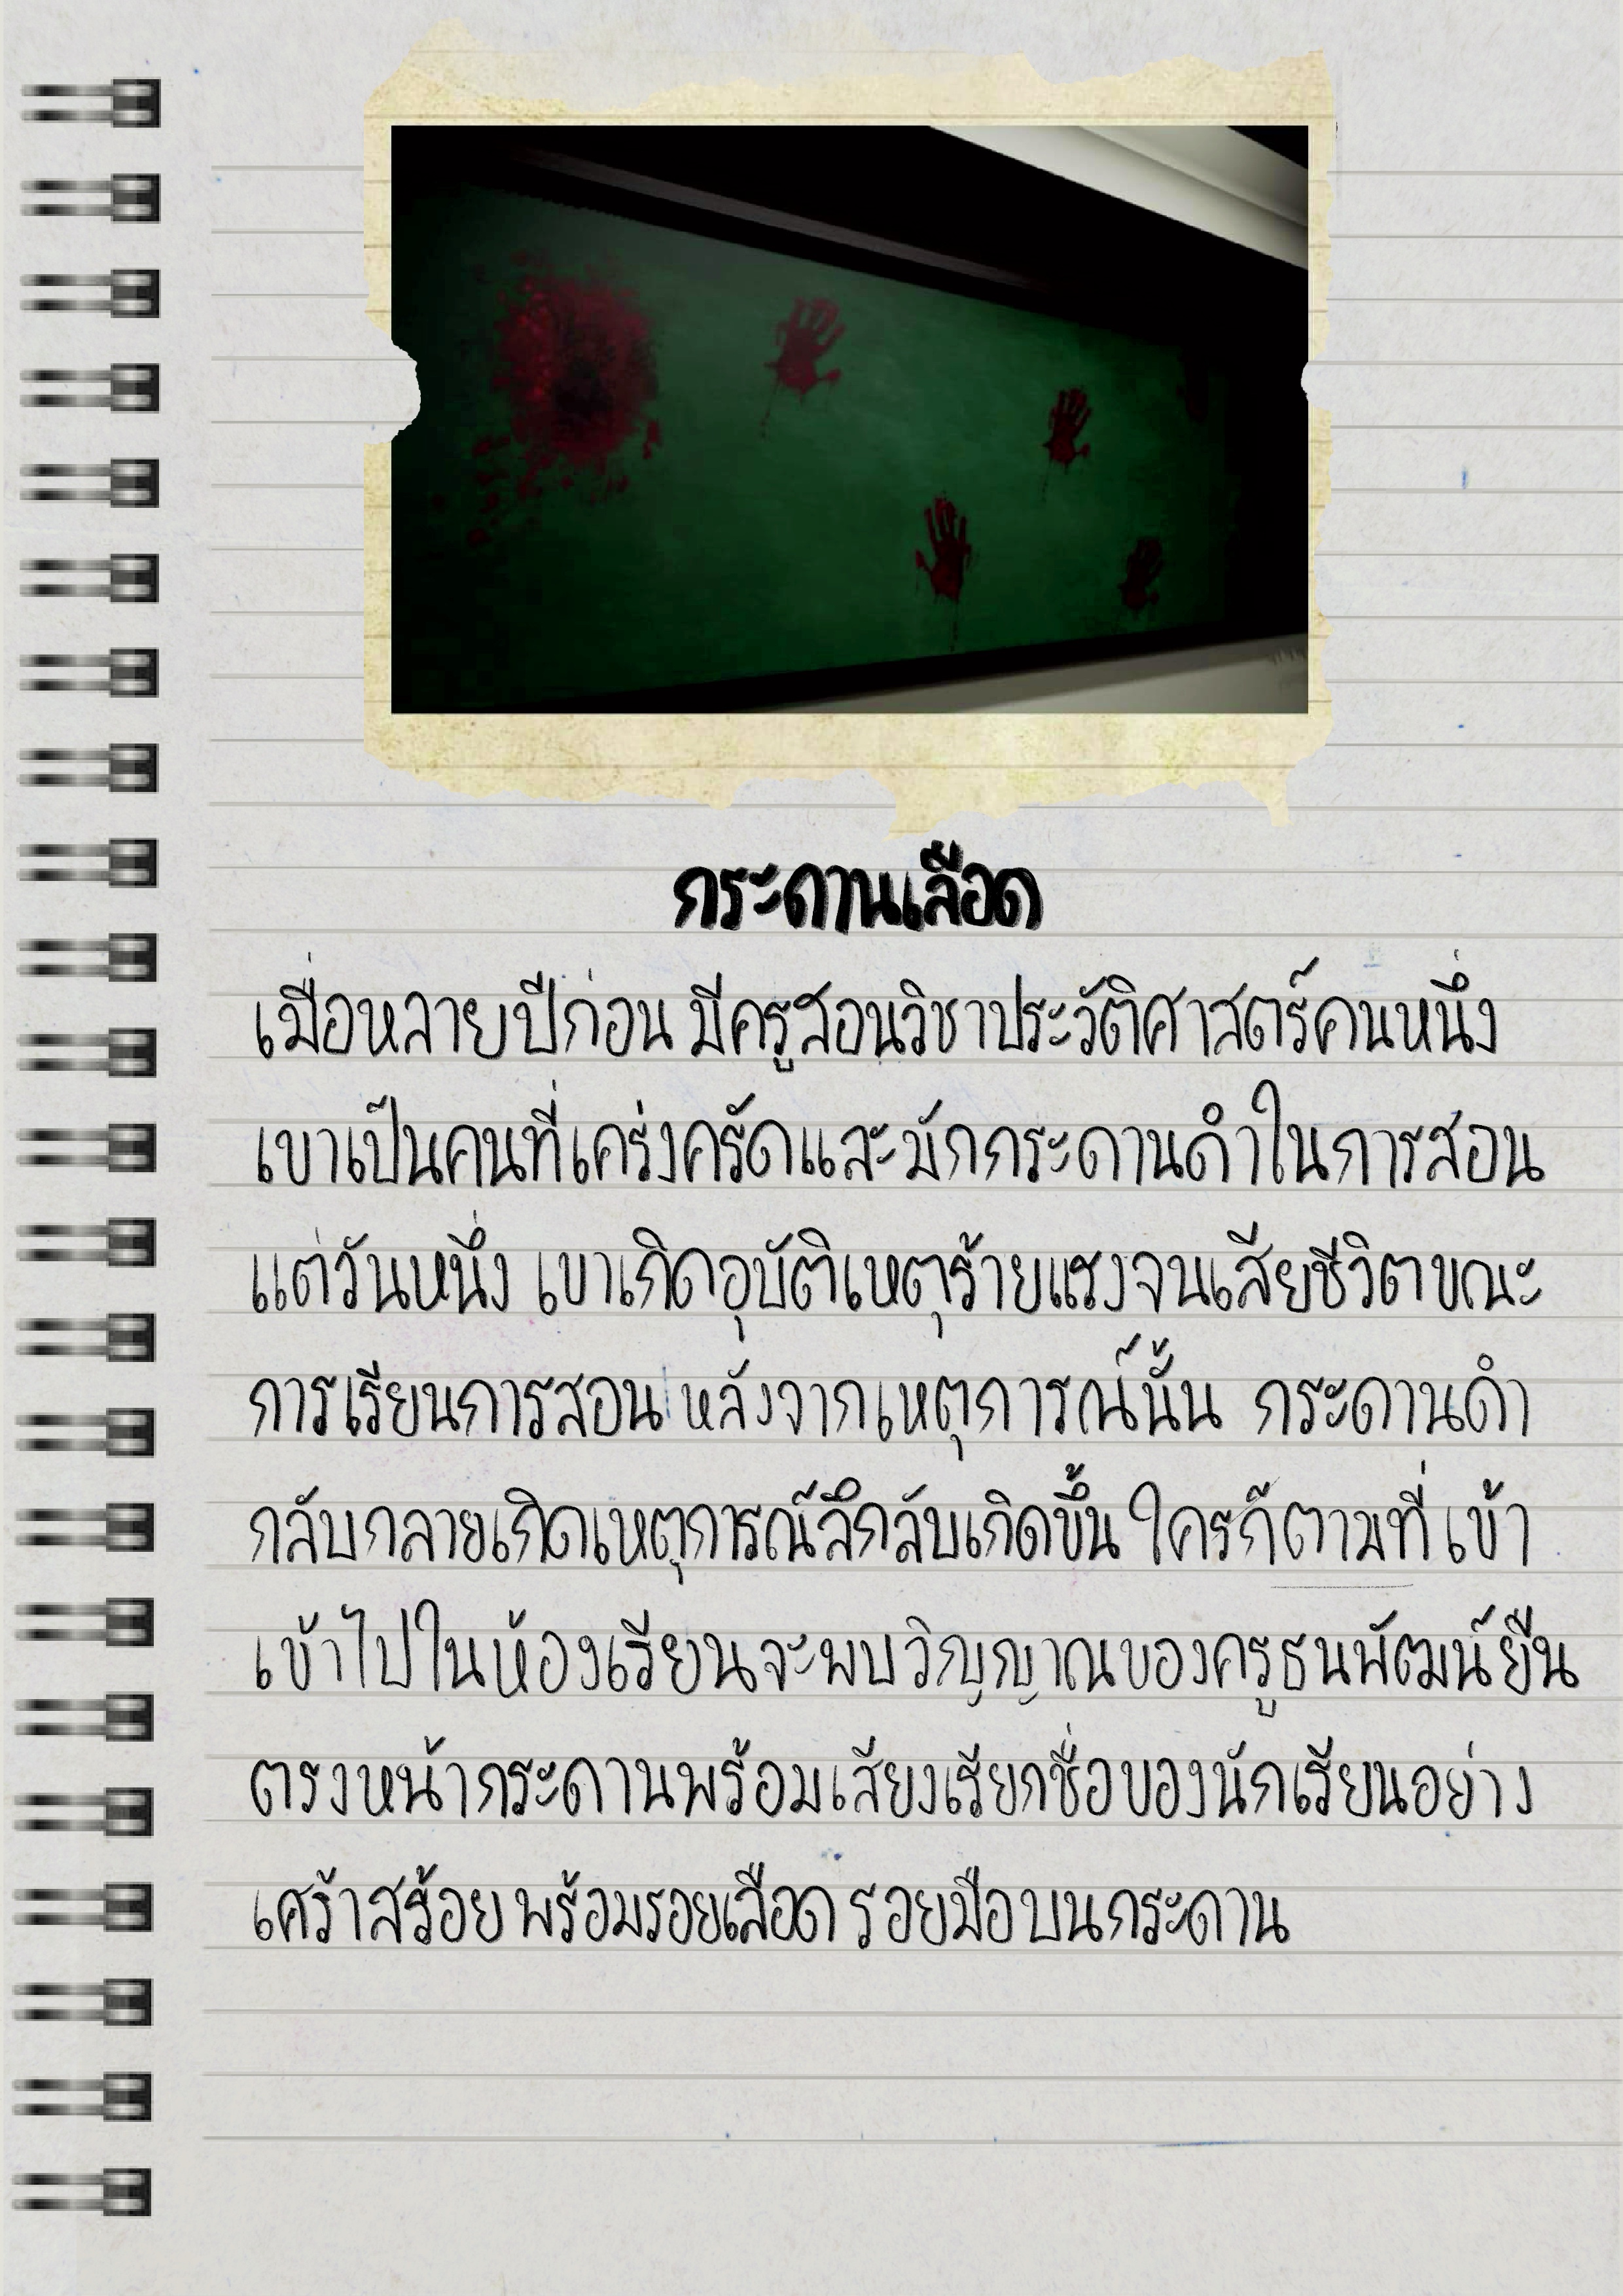 กระดานเลือด
เมื่อหลายปีก่อน มีครูสอนวิชาประวัติศาสตร์คนหนึ่ง
เขาเป็นคนที่เคร่งครัดและมักกระดานดำในการสอน
แต่วันหนึ่ง เขาเกิดอุบัติเหตุร้ายแรงจนเสียชีวิตขณะ
การเรียนการสอน หลังจากเหตุการณ์นั้น กระดานดำ
กลับกลายเกิดเหตุการณ์ลึกลับเกิดขึ้น ใครก็ตามที่ เข้า
เข้าไปในห้องเรียนจะพบวิญญาณของครูธนพัฒน์ยืน
ตรงหน้ากระดานพร้อมเสียงเรียกชื่อของนักเรียนอย่าง
เศร้าสร้อย พร้อมรอยเลือด รอยมือบนกระดาน